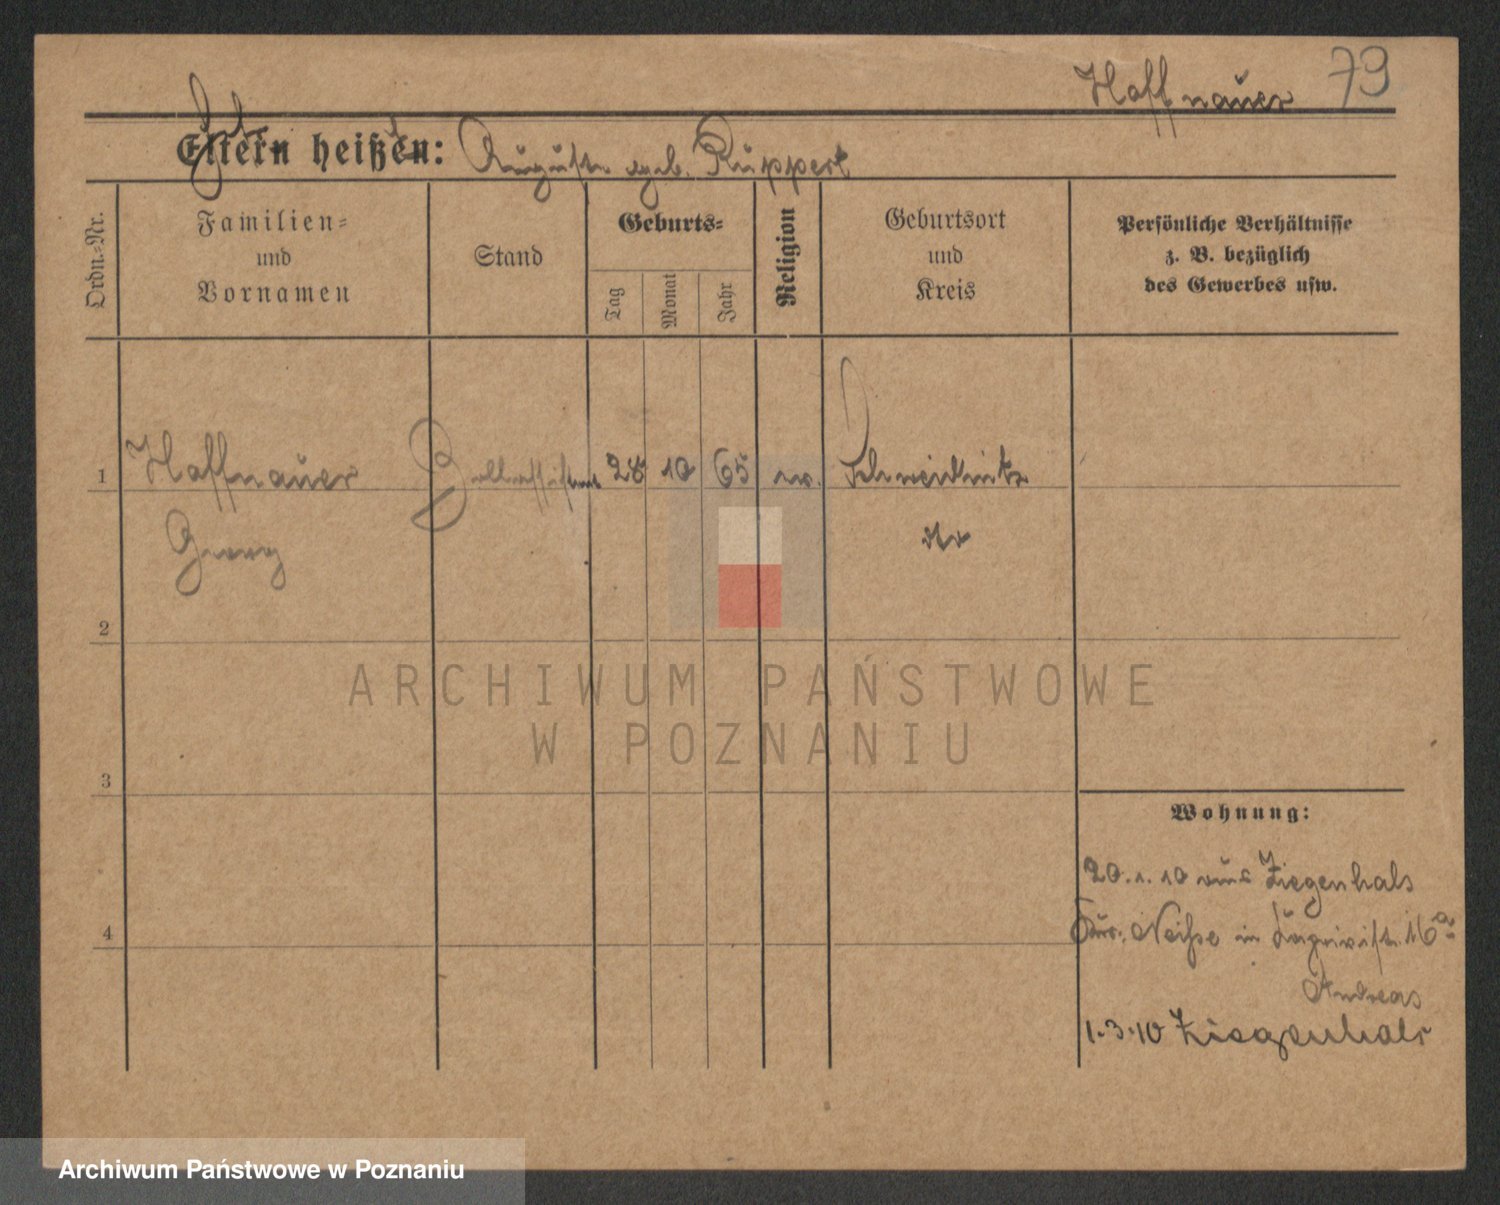 Hoffnauer 79
Eltern heißen: Auguste geb. Ruppert
Ordn.-Nr.
Familien-
und
Vornamen
Stand
Geburts-
Tag
Monat
Jahr
Religion
Geburtsort
und
Kreis
Persönliche Verhältnisse
z. B. bezüglich
des Gewerbes usw.
1 Hoffnauer 28 10 65 ev. Schweidnitz
Georg dto
2
3
4
Wohnung:
20.1.10 aus Ziegenhals
Neiße in 16a
Andreas
1.3.10 Ziegenhals
ARCHIWUM PAŃSTWOWE
W POZNANIU
Archiwum Państwowe w Poznaniu